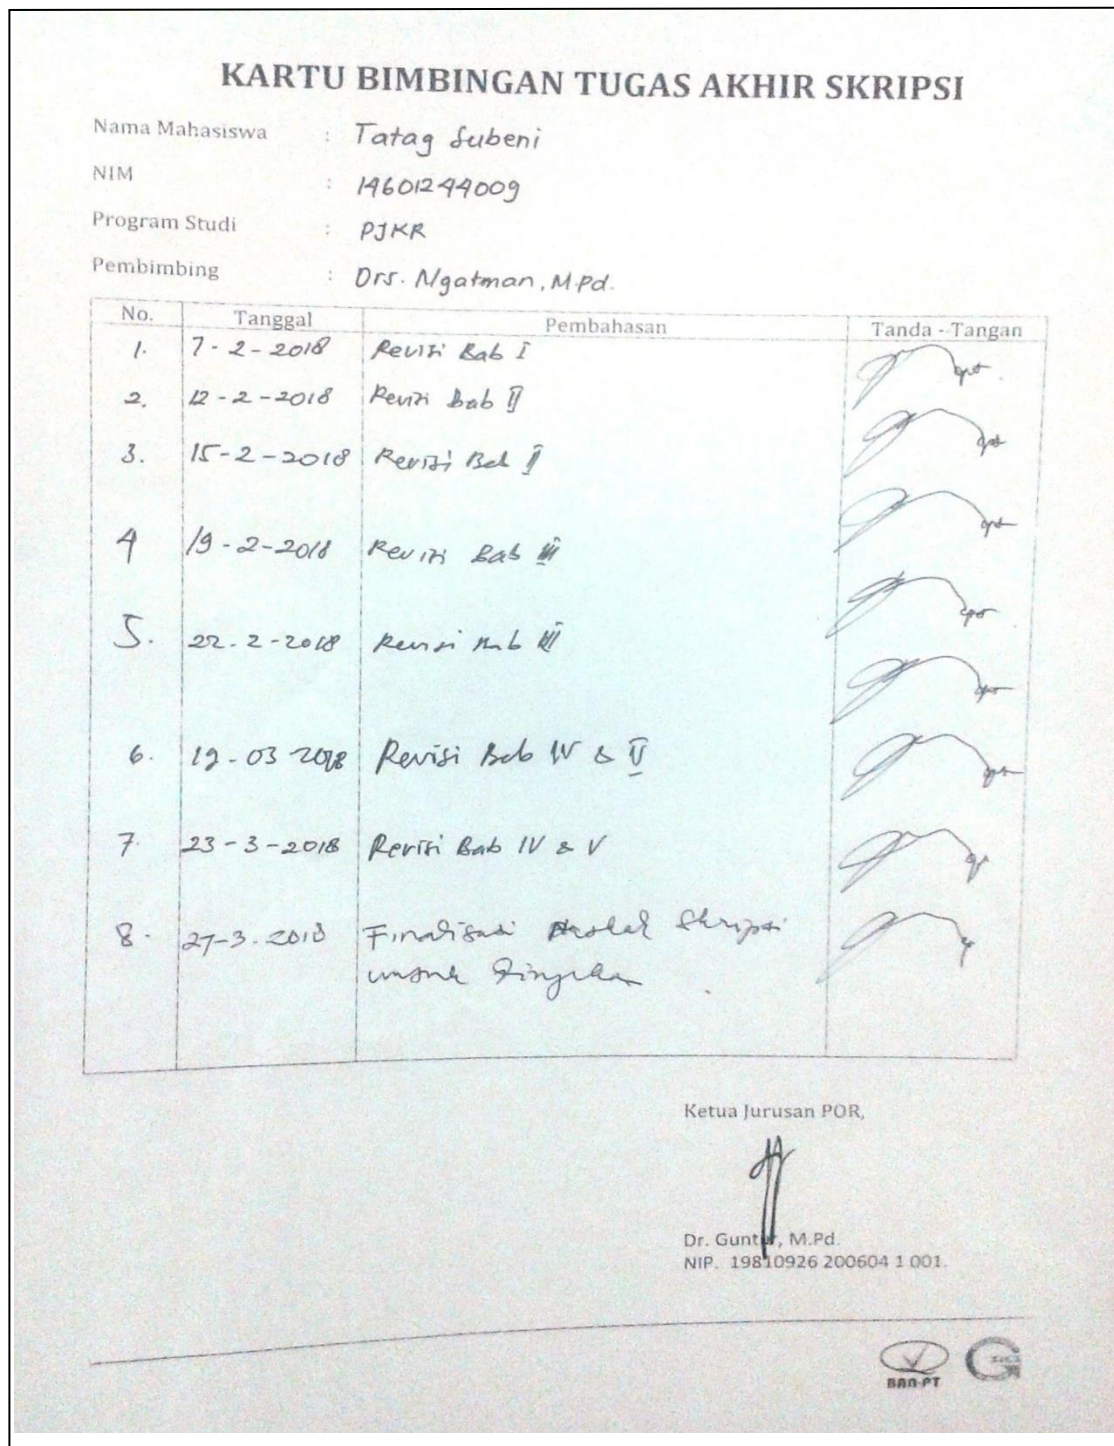 KARTU BIMBINGAN TUGAS AKHIR SKRIPSI
Nama Mahasiswa : Tatag Subeni
NIM : 14601244009
Program Studi : PJKR
Pembimbing : Drs. Ngatman, M.Pd.
No. Tanggal Pembahasan Tanda - Tangan
1. 7-2-2018 Revisi Bab I
2. 12-2-2018 Revisi Bab II
3. 15-2-2018 Revisi Bab II
4 19-2-2018 Revisi Bab III
5. 22-2-2018 Revisi Bab III
6. 19-03 2018 Revisi Bab IV & V
7. 23-3-2018 Revisi Bab IV & V
8. 27-3-2018 Finalisasi Skripsi
untuk
Ketua Jurusan POR,
Dr. Guntur, M.Pd.
NIP. 19810926 200604 1 001.
BAN-PT